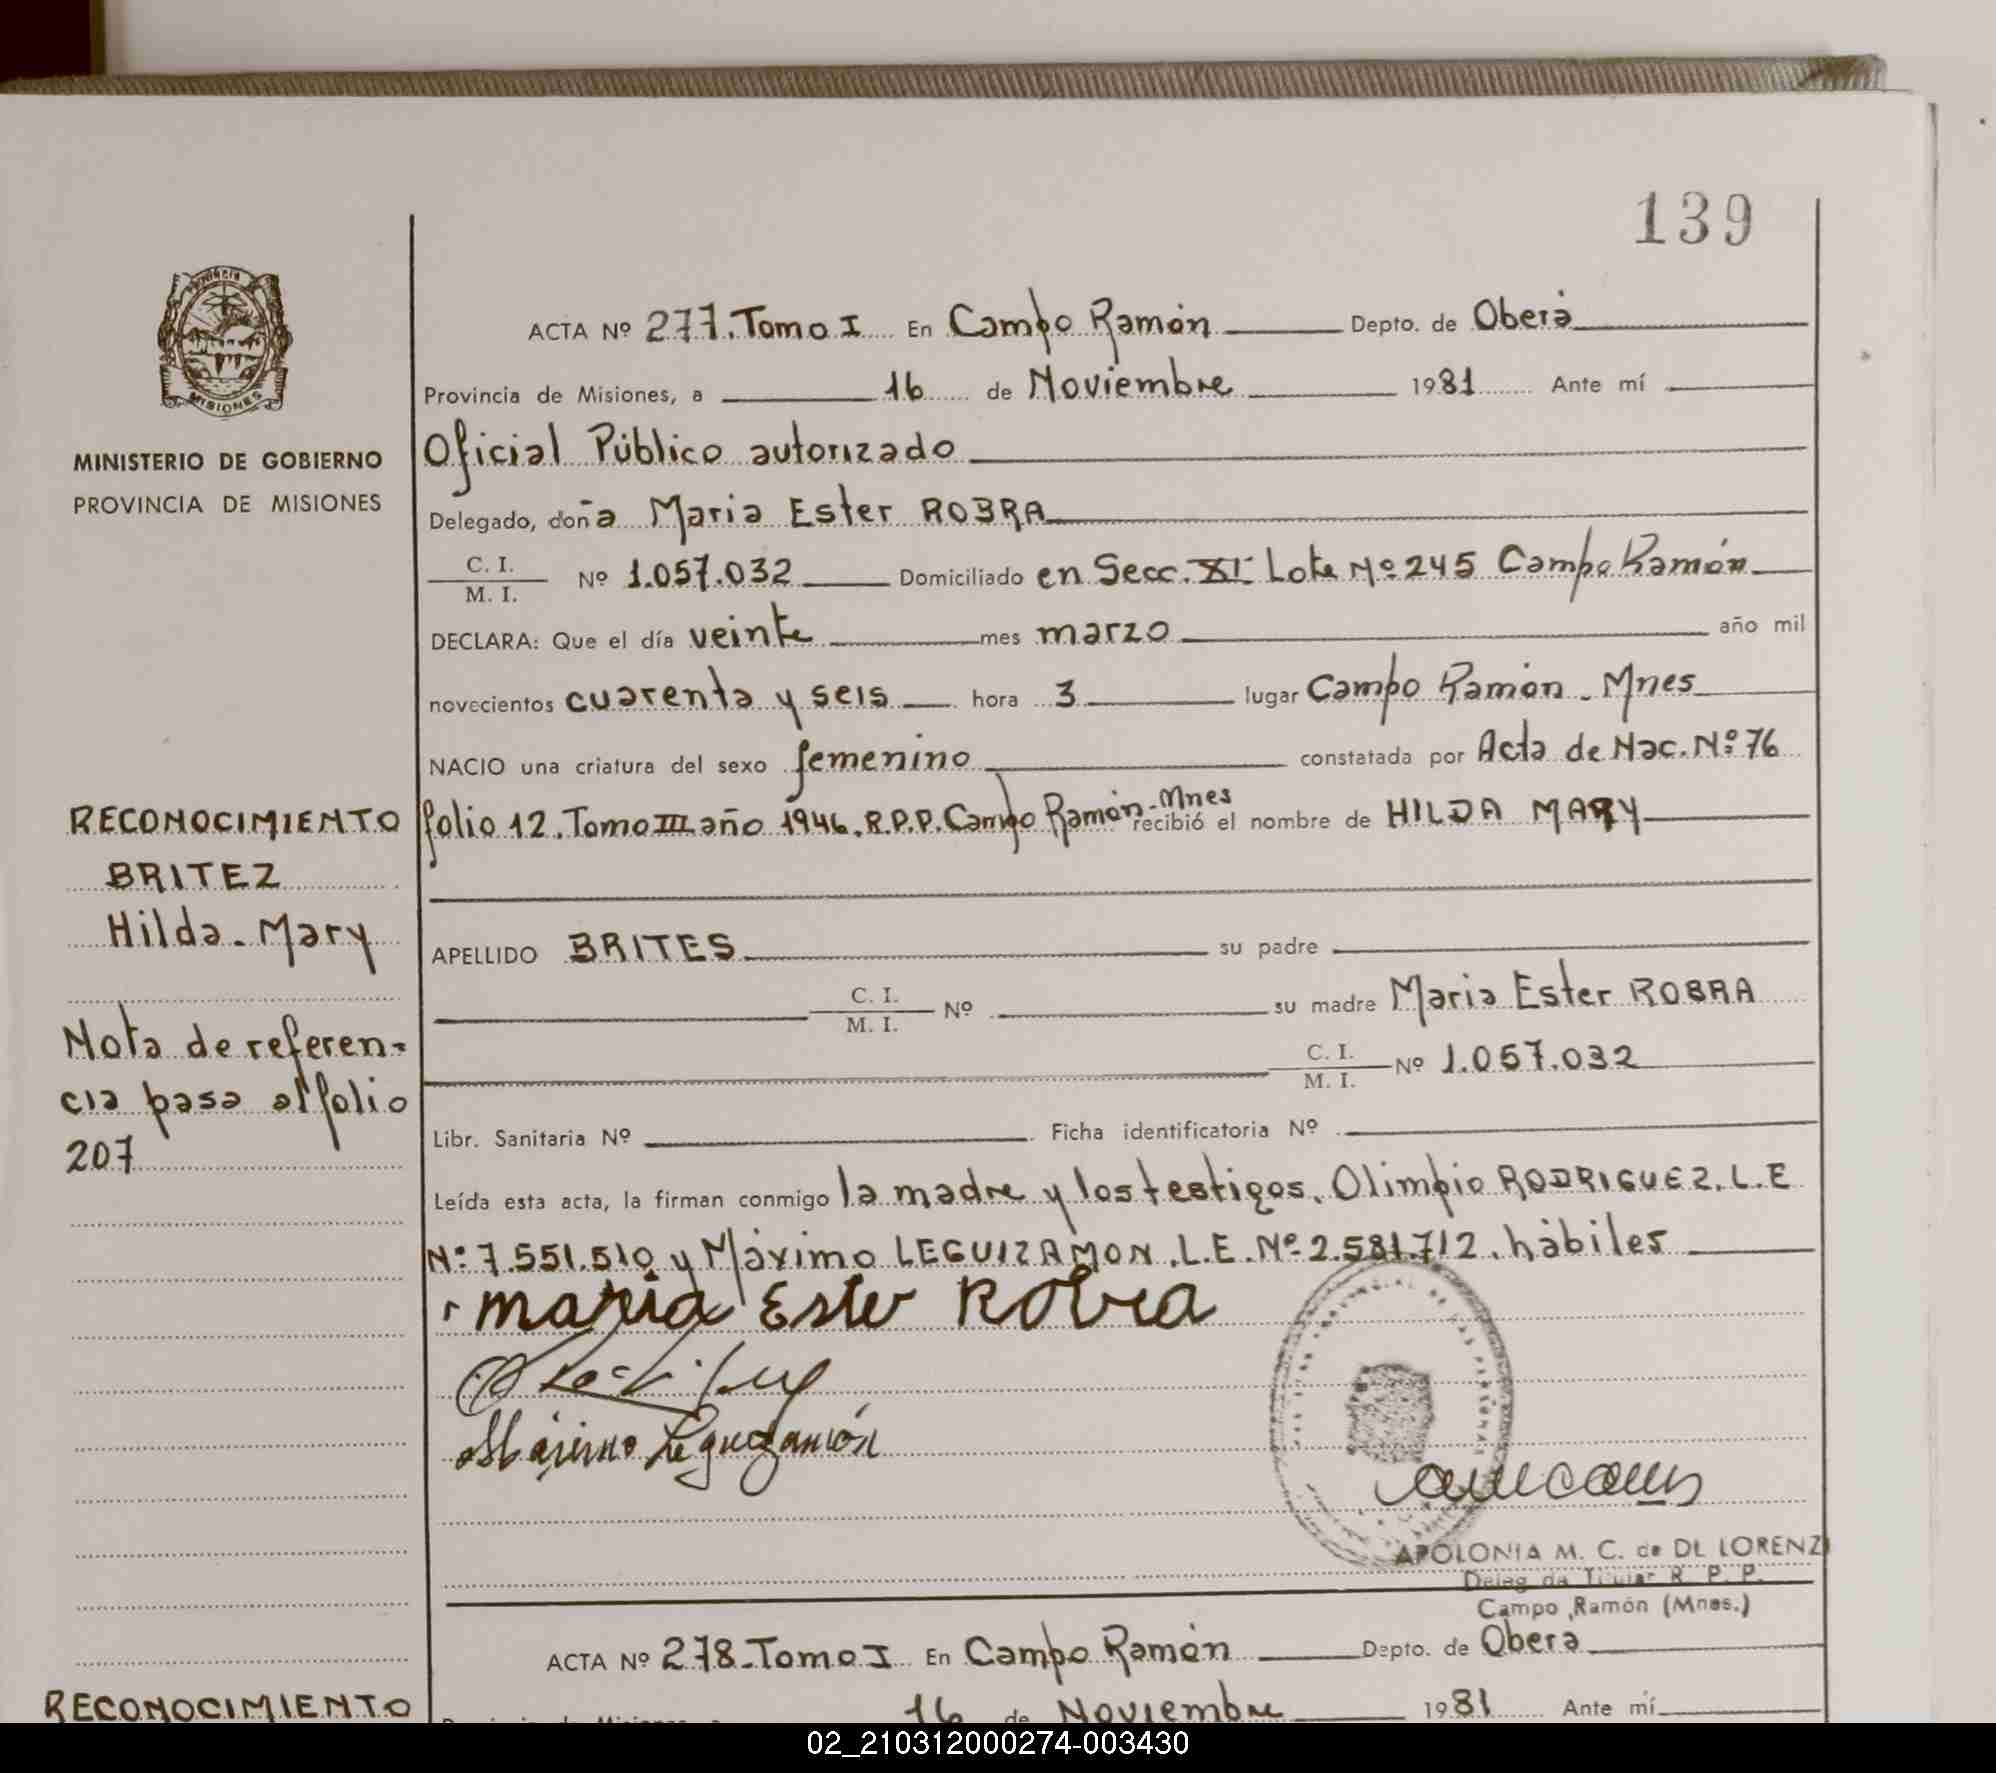 139
PROVINCIA
MISIONES
MINISTERIO DE GOBIERNO
PROVINCIA DE MISIONES
ACTA Nº 277. Tomo I En Campo Ramón Depto. de Oberá
Provincia de Misiones, a 16 de Noviembre 1981 Ante mí
Oficial Público autorizado
Delegado, doña Maria Ester ROBRA
C. I.
M. I.
Nº 1.057.032 Domiciliado en Secc. XI Lote Nº 245 Campo Ramón
DECLARA: Que el día veinte mes marzo año mil
novecientos cuarenta y seis hora 3 lugar Campo Ramón - Mnes
NACIO una criatura del sexo femenino constatada por Acta de Nac. Nº 76
folio 12. Tomo III año 1946. R.P.P. Campo Ramón - Mnes recibió el nombre de HILDA MARY
APELLIDO BRITES su padre
C. I.
M. I.
Nº su madre Maria Ester ROBRA
C. I.
M. I.
Nº 1.057.032
Libr. Sanitaria Nº Ficha identificatoria Nº
Leída esta acta, la firman conmigo la madre y los testigos, Olimpio RODRIGUEZ. L.E
Nº 7.551.510 y Máximo LEGUIZAMON. L.E. Nº 2.581.712. hábiles
Maria Ester Robra
Máximo Leguizamón
APOLONIA M. C. de DE LORENZI
Deleg da Titular R. P. P.
Campo Ramón (Mnes.)
RECONOCIMIENTO
BRITEZ
Hilda - Mary
Nota de referen-
cia pasa al folio
207
ACTA Nº 278. Tomo I En Campo Ramón Depto. de Oberá
16 de Noviembre 1981 Ante mí
RECONOCIMIENTO
02_210312000274-003430